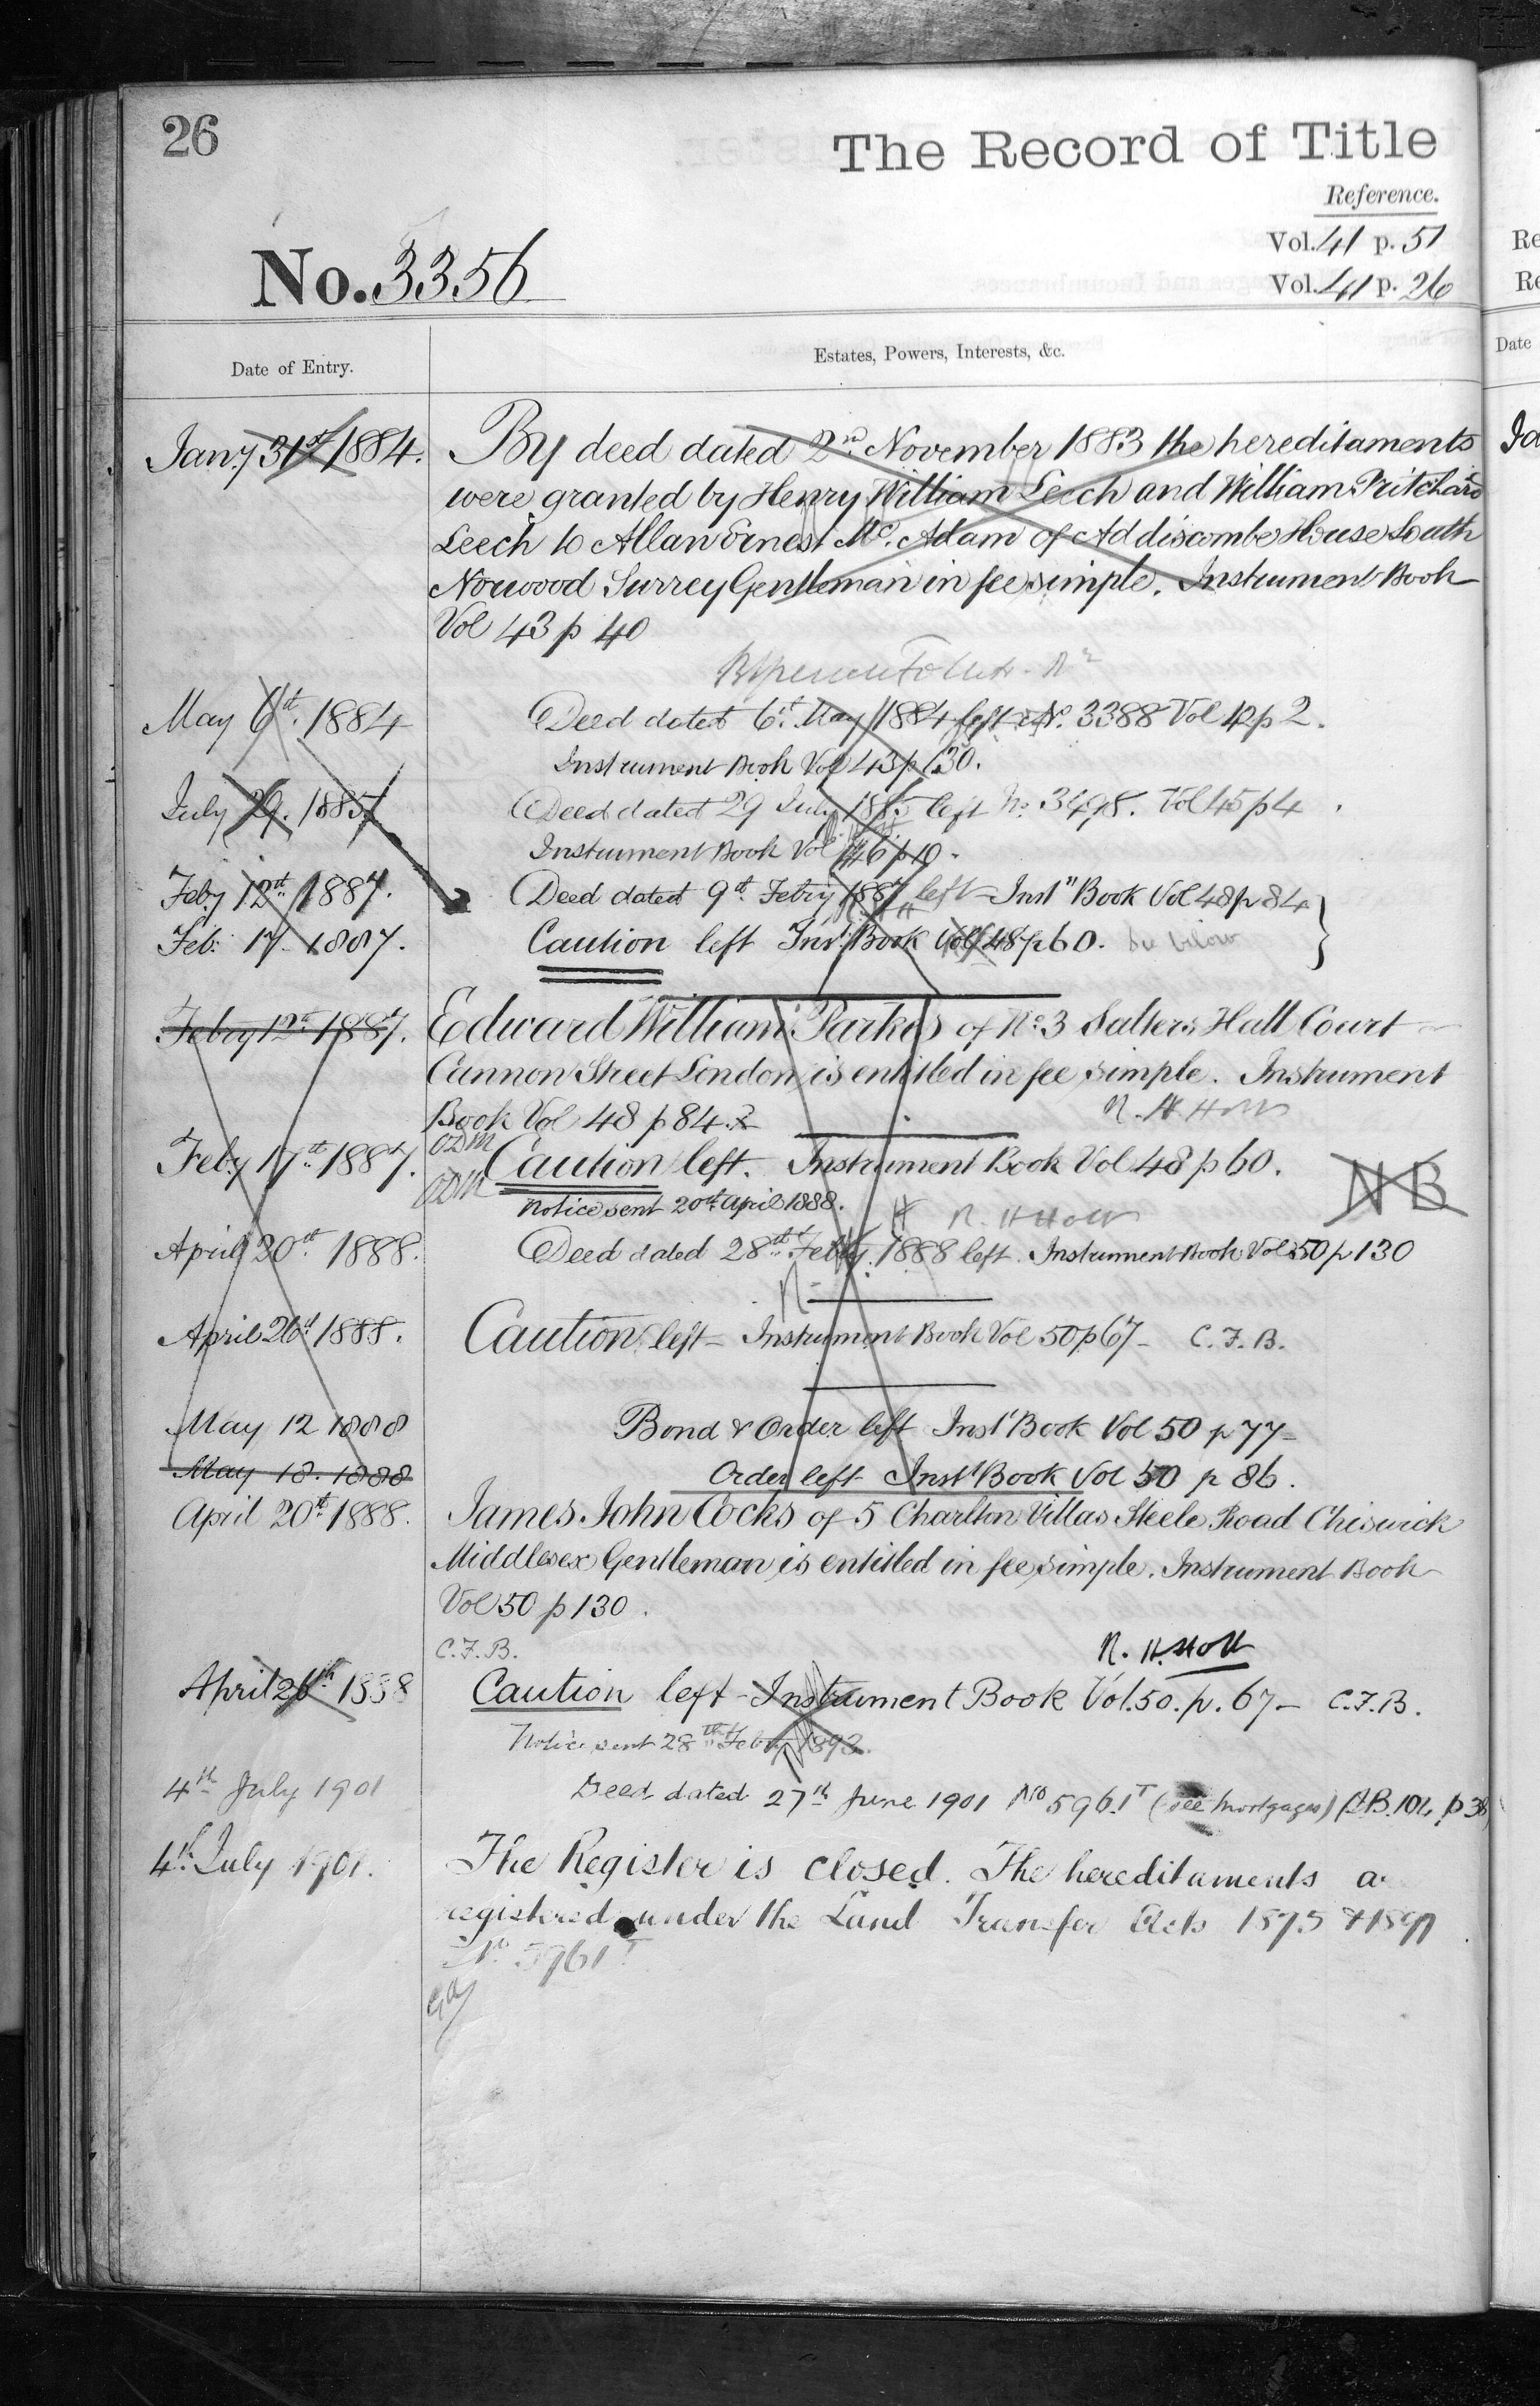 26
The Record of Title
Reference.
Vol. 41 p. 51
No. 3356
Vol. 41 p. 26
Date of Entry.
Estates, Powers, Interests, &c.
Jany 31st 1884. By deed dated 2nd November 1883 the hereditaments
were granted by Henry William Leech and William Pritchard
Leech to Allan Ernest Mc. Adam of Addiscombe House South
Norwood Surrey Gentleman in fee simple. Instrument Book
Vol 43 p 40
May 6th. 1884 Deed dated 6th. May 1884 left No. 3388 Vol 42 p 2.
Instrument Book Vol 43 p 130.
July 29. 1885 Deed dated 29 July 1885 left No. 3498. Vol 45 p 4.
Instrument Book Vol 46 p 10.
Feby 12th 1887. Deed dated 9th. Febry 1887 left - Inst" Book Vol 48 p 84
Feb: 17 1887. Caution left Inst. Book Vol 48 p 60. See below
Febry 12th 1887. Edward William Parkes of No. 3 Salters Hall Court
Cannon Street London is entitled in fee simple. Instrument
Book Vol 48 p 84. N. H. Holt
ODM
Feby 17th 1887. Caution left. Instrument Book Vol 48 p 60. NB
ODM Notice sent 20th April 1888.
N. H Holt
April 20th 1888. Deed dated 28th Feby. 1888 left. Instrument Book Vol 50 p 130
April 26th 1888. Caution left - Instrument Book Vol 50 p 67 - C. F. B.
May 12 1888 Bond & Order left Inst Book Vol 50 p 77 -
May 18. 1888 Order left Inst Book Vol 50 p 86.
April 20th 1888. James John Cocks of 5 Charlton Villas Steele Road Chiswick
Middlesex Gentleman is entitled in fee simple. Instrument Book
Vol 50 p 130.
C. F. B. N. H. Holt
April 26th 1888 Caution left - Instrument Book Vol. 50. p. 67 - C. F. B.
Notice sent 28th Feby 1893.
4th July 1901 Deed dated 27th June 1901 No 5961T (see Mortgages)
4th July 1901. The Register is closed. The hereditaments
registered under the Land Transfer Acts 1875 & 1897
No 5961T